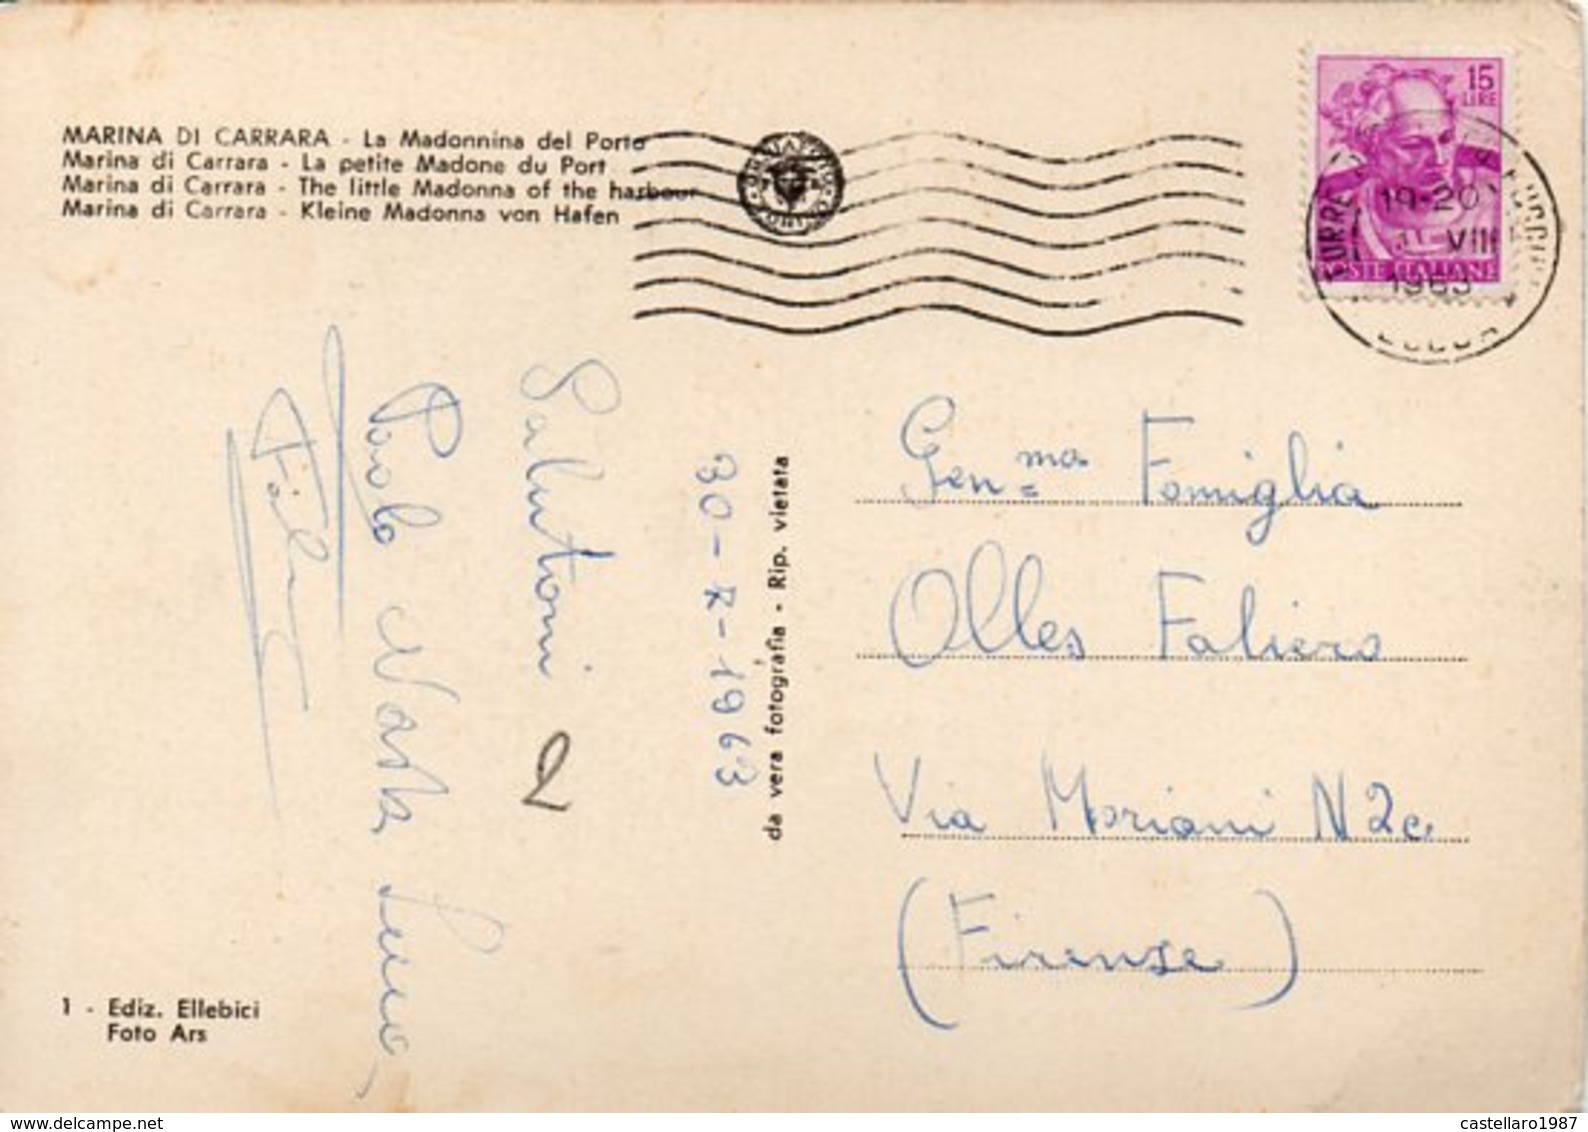 MARINA DI CARRARA - La Madonnina del Porto
Marina di Carrara - La petite Madone du Port
Marina di Carrara - The little Madonna of the harbour
Marina di Carrara - Kleine Madonna von Hafen
15
LIRE
POSTE ITALIANE
19-20
VIII
1963
LUCCA
Salutoni
Paolo
30-7-1963
da vera fotografia - Rip. vietata
Gen=ma Famiglia
Olles Faliero
Via Mariani N 2c
(Firenze)
1 - Ediz. Ellebici
Foto Ars
castellaro1987